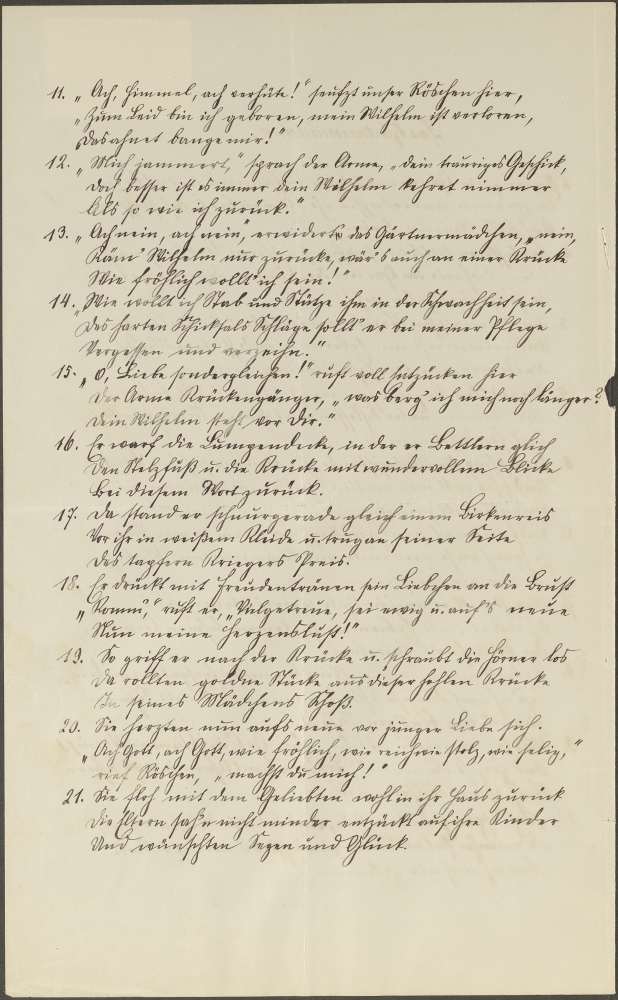 11. „Ach, Himmel, ach verhüte!" seufzt unser Röschen hier,
„Zum Leid bin ich geboren, mein Wilhelm ist verloren,
Das ahnet bange mir!"
12. „Mich jammert," sprach der Arme, „dein trauriges Geschick,
Doch besser ist es immer dein Wilhelm kehret nimmer
Als so wie ich zurück."
13. „Ach nein, ach nein," erwidert das Gärtnermädchen, „nein,
Käm' Wilhelm nur zurücke, wär's auch an einer Krücke
Wie fröhlich wollt' ich sein!"
14. „Wie wollt ich Stab und Stütze ihm in der Schwachheit sein,
Des harten Schicksals Schläge sollt' er bei meiner Pflege
Vergessen und verzeihn."
15. „O, Liebe sondergleichen!" ruft voll Entzücken hier
Der Arme Krückengänger, „was berg' ich mich noch länger?
Dein Wilhelm steht vor Dir."
16. Er warf die Lumpendecke, in der er Bettlern glich
Den Stelzfuß u. die Krücke mit wundervollem Blicke
Bei diesem Wort zurück.
17. Da stand er schnurgerade gleich einem Birkenreis
Vor ihr in weißem Kleide u. trug an seiner Seite
Des tapfern Kriegers Preis.
18. Er drückt mit Freudentränen sein Liebchen an die Brust
„Komm," ruft er, „Vielgetreue, sei ewig u. auf's neue
Nun meine Herzenslust!"
19. So griff er nach der Krücke u. schraubt die Hörner los
Da rollten goldne Stücke aus dieser hohlen Krücke
In seines Mädchens Schoß.
20. Sie herzten nun aufs neue vor junger Liebe sich.
„Ach Gott, ach Gott, wie fröhlich, wie reich wie stolz, wie selig,"
rief Röschen, „machst du mich!"
21. Sie floh mit dem Geliebten wohl in ihr Haus zurück
Die Eltern sah'n nicht minder entzückt auf ihre Kinder
Und wünschten Segen und Glück.